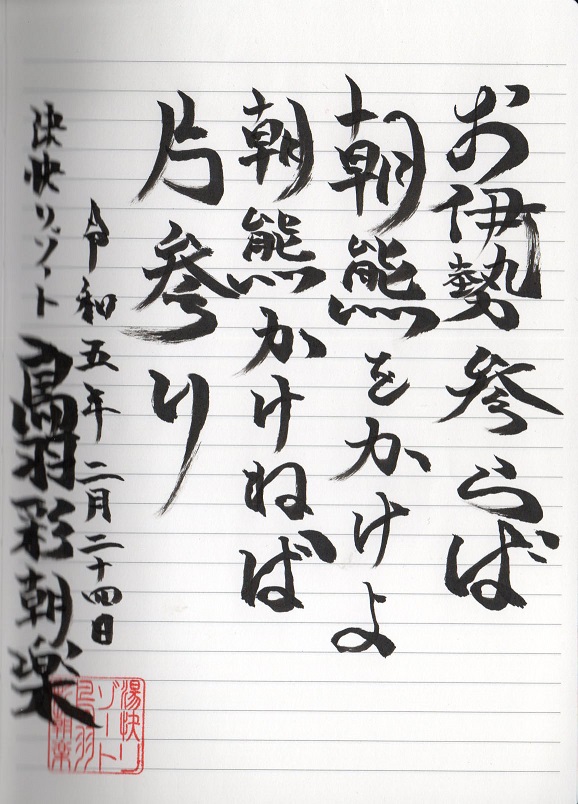 お伊勢参らば
朝熊をかけよ
朝熊かけねば
片参り
令和五年二月二十四日
湯快リゾート 鳥羽彩朝楽
湯快リ
ゾート
鳥羽
彩朝楽